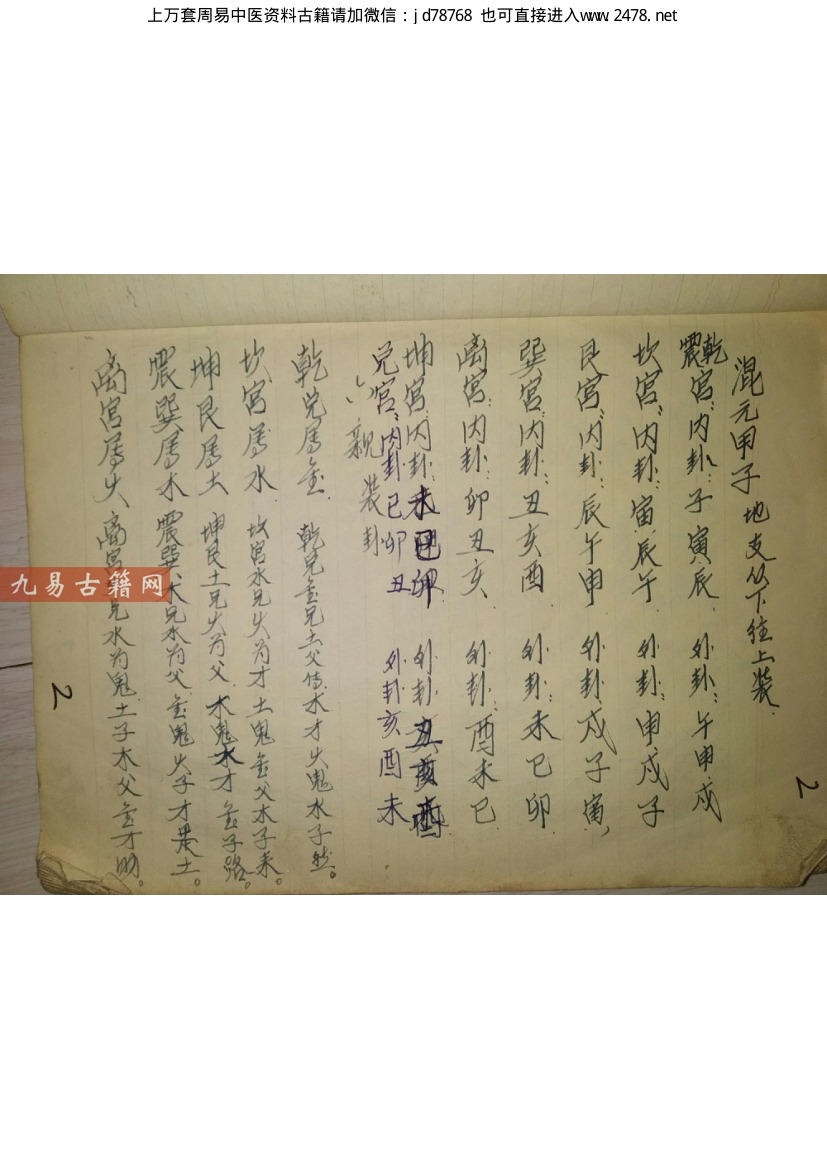 上万套周易中医资料古籍请加微信：jd78768 也可直接进入www.2478.net
混元甲子 地支从下往上装.
乾震宫：内卦：子寅辰. 外卦：午申戍
坎宫：内卦：寅辰午 外卦：申戍子
艮宫：内卦：辰午申 外卦：戍子寅,
巽宫：内卦：丑亥酉 外卦：未巳卯
离宫：内卦：卯丑亥 外卦：酉未巳
坤宫：内卦：未巳卯 外卦：丑亥酉
兑宫：内卦巳卯丑 外卦亥酉未
六亲装卦
乾兑属金 乾兑金兄土父传木才火鬼水子然。
坎宫属水 坎宫水兄火为才土鬼金父木子来。
坤艮属土 坤艮土兄火为父.木鬼水才金子路。
震巽属木 震巽木兄水为父金鬼火子才是土。
离宫属火 离宫兄水为鬼土子木父金才助。
九易古籍网
2
2